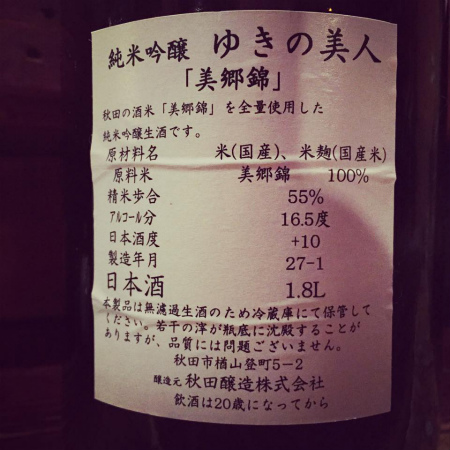 純米吟醸 ゆきの美人
「美郷錦」
秋田の酒米「美郷錦」を全量使用した
純米吟醸生酒です。
原材料名 米(国産)、米麹(国産米)
原料米 美郷錦 100%
精米歩合 55%
アルコール分 16.5度
日本酒度 +10
製造年月 27-1
日本酒 1.8L
本製品は無濾過生酒のため冷蔵庫にて保管して
ください。若干の滓が瓶底に沈殿することが
ありますが、品質には問題ございません。
秋田市楢山登町5-2
醸造元 秋田醸造株式会社
飲酒は20歳になってから